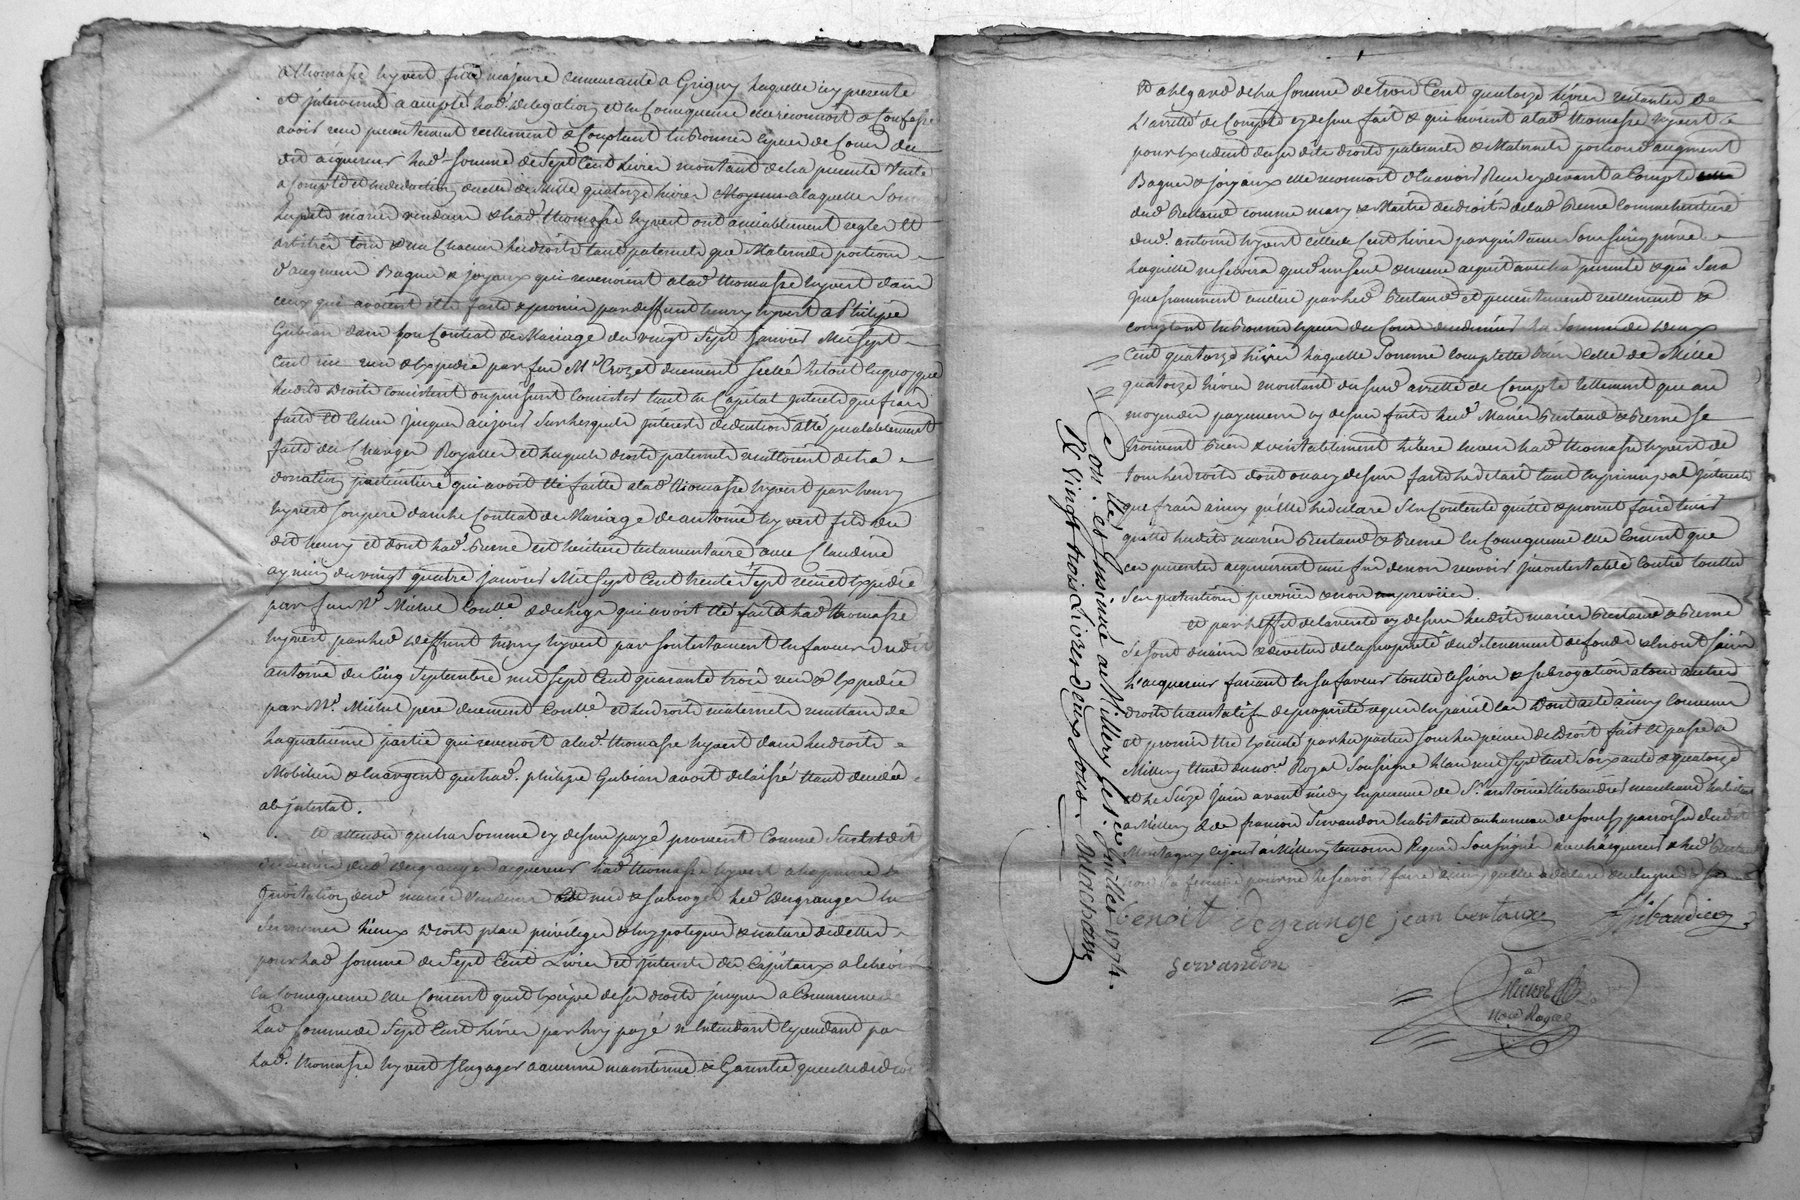 a thomasse hyvert fille majeure demeurante a Grigny laquelle icy presente
et intervenante a accepté lad. delegation et en Consequence elle reconnoit & Confesse
avoir reçu presentement reellement & Comptant en bonnes especes de Cours du
dit acquereur lad. somme de Sept Cent Livres montant de la presente vente
a Compte et en deduction de celle de Mille quatorze livres a laquelle Somme
lesdits mariés vendeurs & lad. thomasse hyvert ont amiablement reglés et
arbitrés tous & un Chacun les droits tant paternels que Maternels portions
d'augment Bagues & joyaux qui revenoient a lad. thomasse hyvert dans
ceux qui avoient eté faits & promis par deffunt henry hyvert a Philippe
Gubian dans son Contrat de Mariage du vingt Sept Janvier Mil sept
Cent reçu & Expedié par feu Me Crozet duement scellé le tout en quoy que
lesdits droits consistent ou puissent consister tant en Capital interets que frais
faits et echus jusques aujourd'huy Sur lesquels interets deduction a eté prealablement
faitte des Charges Royalles et lesquels droits paternels resultoient de la
donation particuliere qui avoit eté faitte a lad. thomasse hyvert par henry
hyvert son pere dans le Contrat de Mariage de antoine hyvert fils du
dit henry et dont lad. Berne est heritiere testamentaire avec Claudine
du vingt quatre janvier Mil sept Cent trente Sept reçu et Expedié
par feu Me Michel Conllé & du legs qui avoit eté fait a lad. thomasse
hyvert par led. deffunt henry hyvert par son testament en faveur dudit
antoine du Cinq Septembre mil sept Cent quarante trois reçu & Expedié
par Me. Michel pere duement Conllé et les droits maternels resultans de
la quatrieme partie qui revenoit a lad. thomasse hyvert dans les droits
Mobiliers & en argent que lad. philippe Gubian avoit delaissé etant decedée
ab intestat.
Et attendu que la Somme cy dessus payé provient Comme Sus est dit
des deniers dud. degranger acquereur lad. thomasse hyvert a la priere &
invitation desd. mariés vendeurs a mis & subrogé led. degranger en
Ses memes lieux droits place privileges & hypotheques & nature de dettes
pour lad. somme de Sept Cent Livres et interets des Capitaux a echeoir
en Consequence elle Consent qu'il Excipe de ses droits jusques a Concurrence de
lad. somme de Sept Cent livres par luy payé n'entendant cependant pas
lad. thomasse hyvert s'engager a aucune maintenue & Garentie que de ses
Et a l'egard de la somme de trois Cent quatorze livres restantes de
L'arretté de Compte cy dessus fait & qui revient a lad. thomasse hyvert
pour Excedent de ses dits droits paternels & Maternels portions d'augment
Bagues & joyaux elle reconnoit et avoir Reçu cy devant a Compte
dud. Bertaud comme mary & Maitre des droits de lad. Berne Comme heritiere
dud. antoine hyvert celle de Cent livres par quittance Sous Seing privé
laquelle ne servira que d'un seul & meme acquit avec la presente & qui sera
presentement reellement &
comptant en bonnes especes du Cours des deniers la Somme de deux
Cent quatorze livres laquelle Somme complette celle de Mille
quatorze livres montant du susd. arretté de Compte tellement que au
moyen des payements cy dessus faits lesd. Mariés Bertaud & Berne se
trouvent bien & veritablement liberé envers lad. thomasse hyvert de
tous les droits dont on a cy dessus fait le detail tant en principal interets
que frais ainsy qu'elle le declare S'en Contente quitte & promet faire tenir
quitte lesdits mariés Bertaud & Berne en Consequence elle Consent que
ces presentes acquierent une fin de non recevoir incontestable Contre touttes
Ses pretentions prevües & non imprevües.
Et par l'effet de la vente cy dessus lesdits mariés Bertaud & Berne
Se sont demis & devetus de la propriété dud. tenement de fonds & en ont saisi
L'acquereur faisant en sa faveur toutte Cession & subrogation a tous autres
droits translatifs de propriété requis en pareil cas Dont acte ainsy convenu
et promis etre Executé par les parties sous les peines de droit fait et passé a
Millery Etude du nore Royal Soussigné L'an mil sept Cent Soixante & quatorze
et le Seize juin avant midy en presence de Sr. antoine thibaudier marchand habitant
a Millery & de françois Servandon habitant au hameau de Sourzy parroisse dudit
Montagny ce jour a Millery temoins Requis Soussignés avec l'acquereur & led. Bertaud
non la femme pour ne le sçavoir faire ainsy qu'elle a declaré
benoit degrange jean bertaux Thibaudier
Servandon
Michel
nore Royal
Con. et Insinué a Millery le 1er Juillet 1774.
Rç Vingt trois Livres deux Sous
Marchand